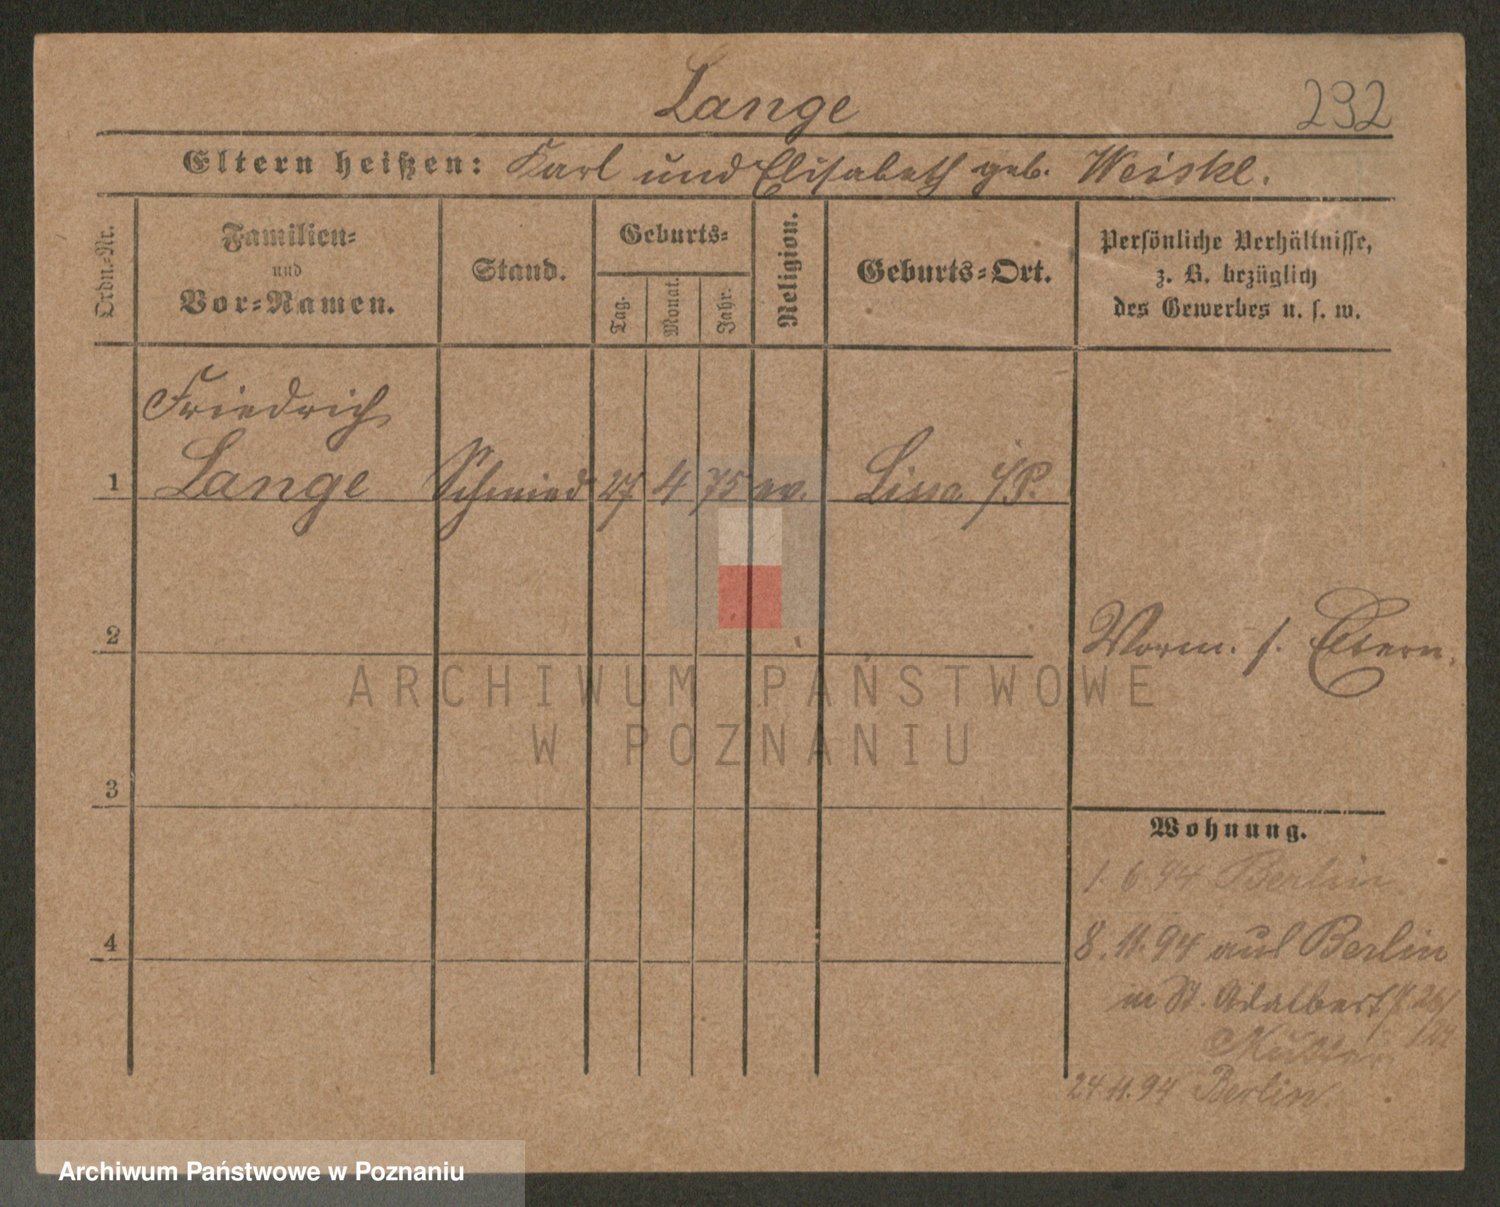 Lange
232
Eltern heißen: Karl und Elisabeth geb. Weiskl.
Ordn.-Nr.
Familien-
und
Vor-Namen.
Stand.
Geburts-
Tag.
Monat.
Jahr.
Religion.
Geburts-Ort.
Persönliche Verhältnisse,
z. B. bezüglich
des Gewerbes u. s. w.
Friedrich
1 Lange Schmied 27 4 75 ev. Lissa i/P.
2
Vorm. s. Eltern.
3
Wohnung.
1. 6 94 Berlin
8. 11. 94 aus Berlin
4
in St. Adalbert
24 11. 94 Berlin
ARCHIWUM PAŃSTWOWE
W POZNANIU
Archiwum Państwowe w Poznaniu